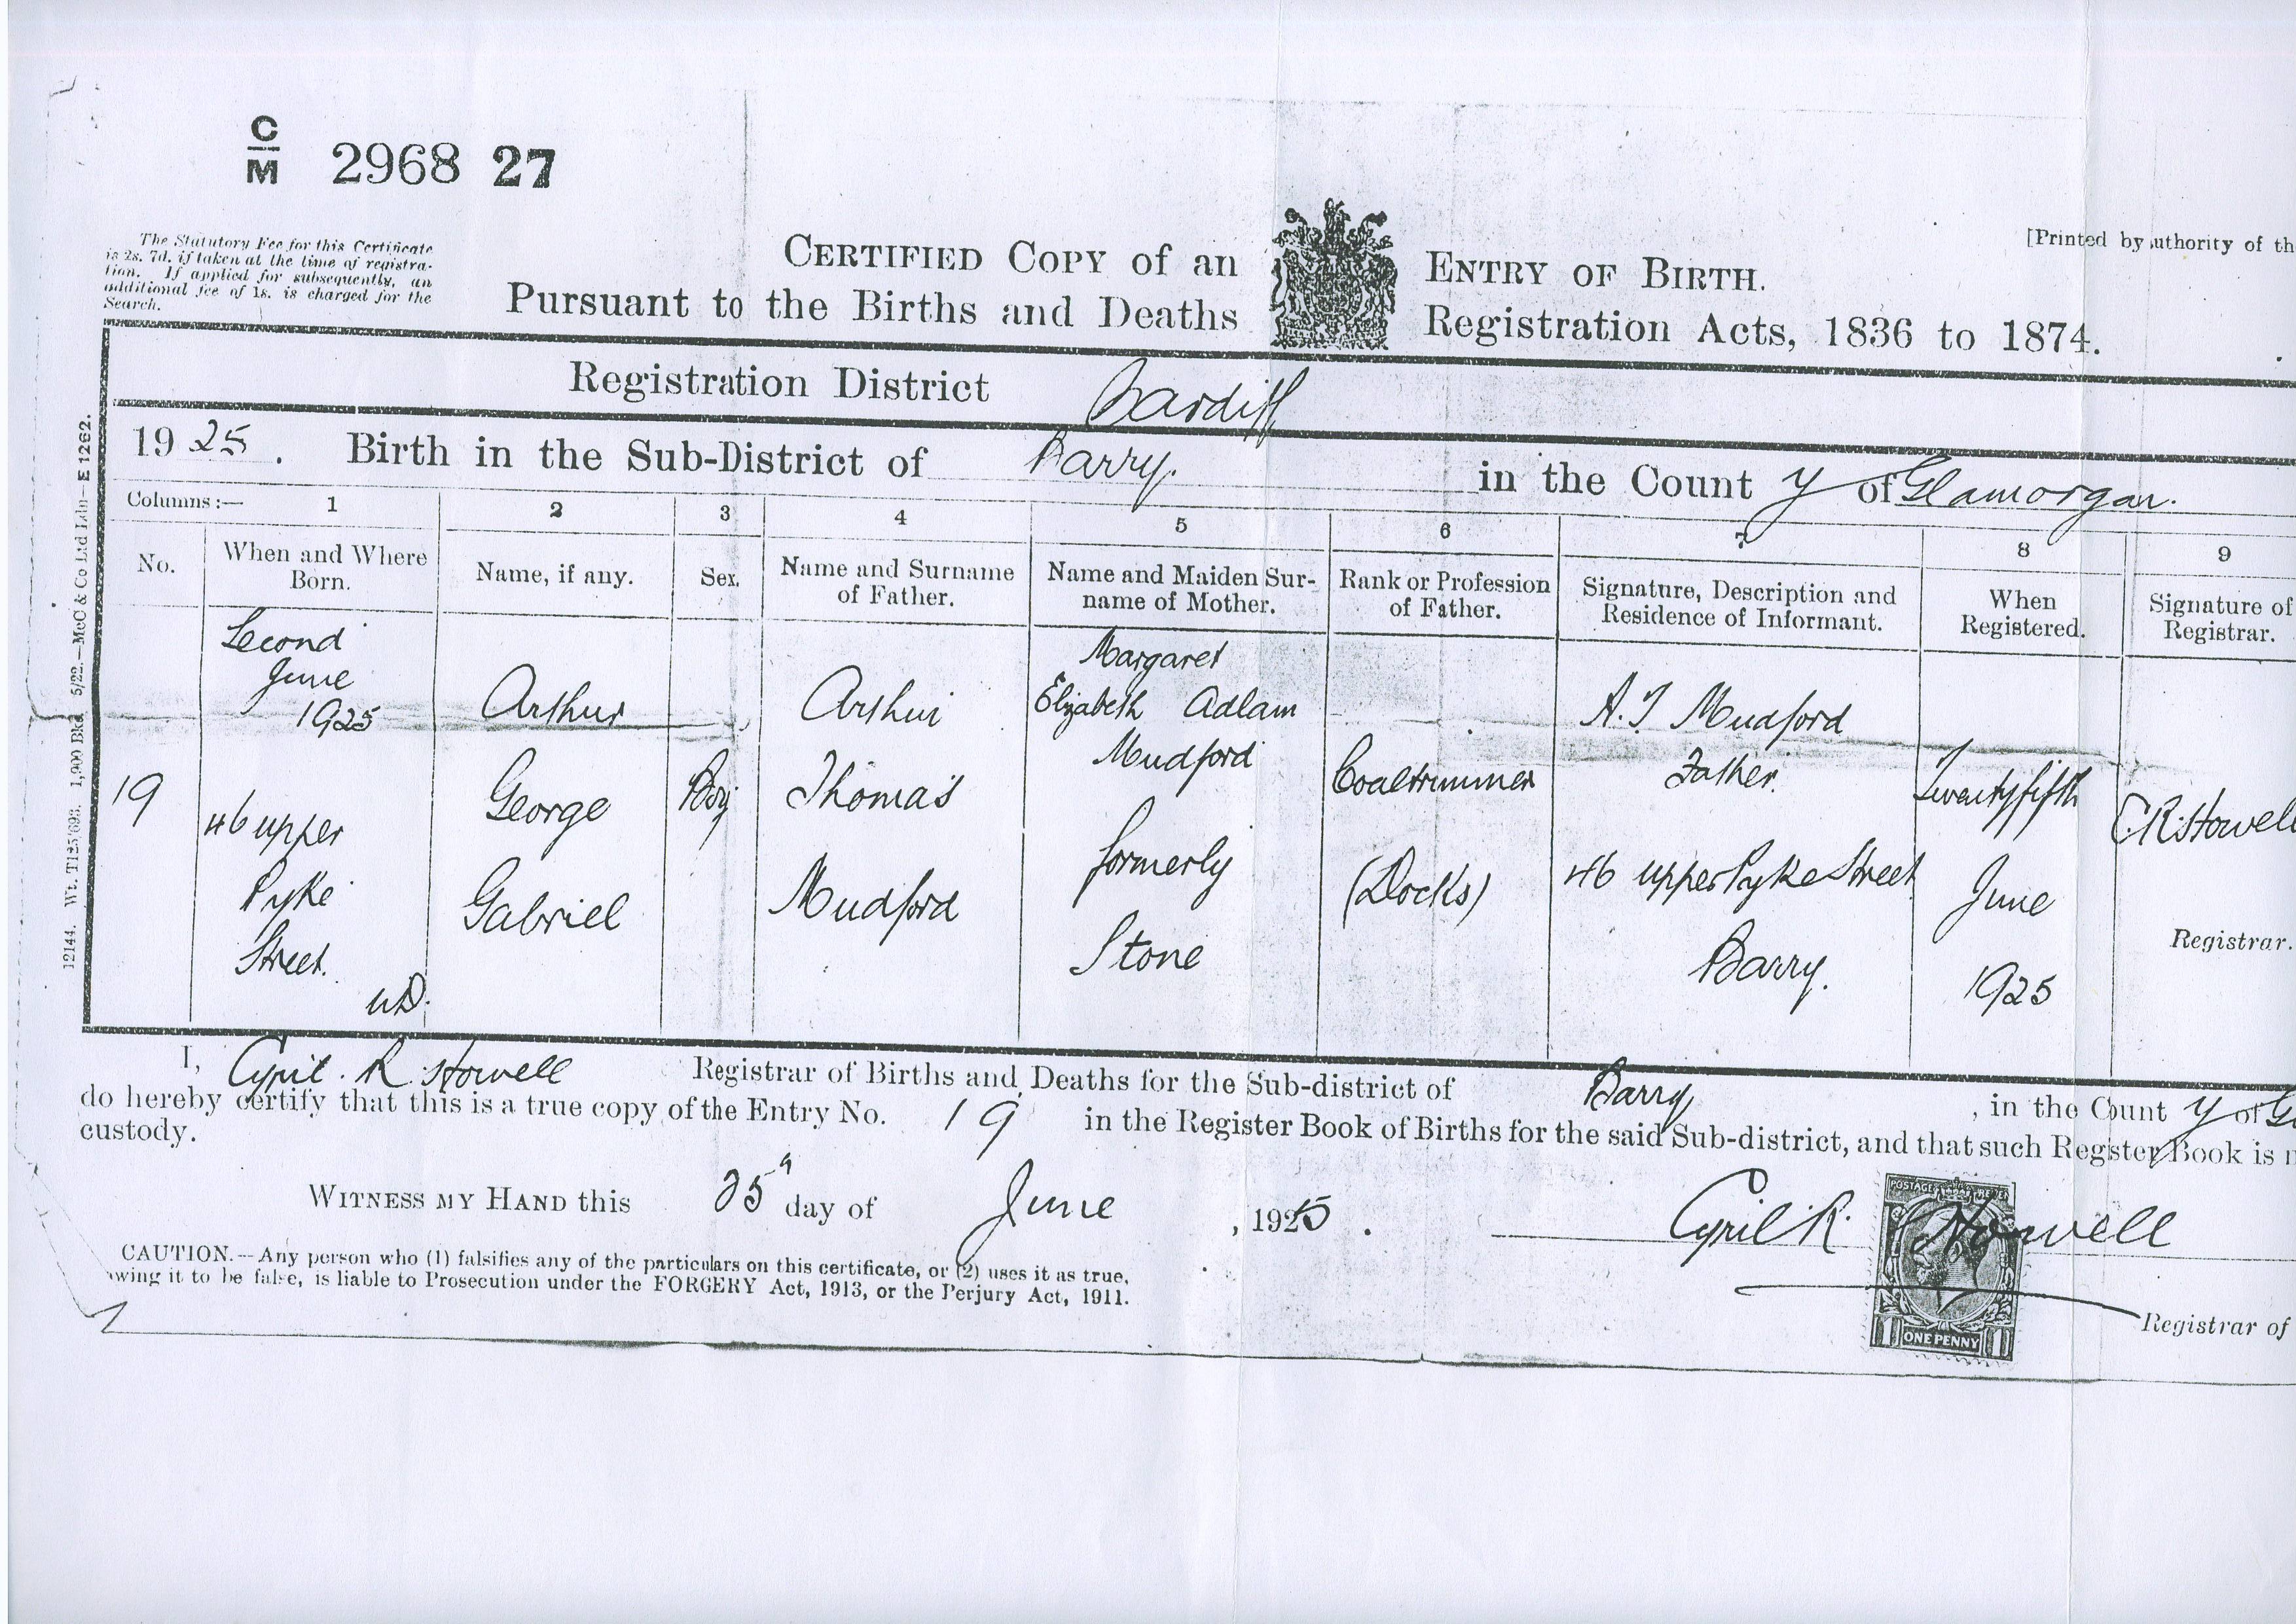 C
M 2968 27
The Statutory Fee for this Certificate
is 2s. 7d. if taken at the time of registra-
tion. If applied for subsequently, an
additional fee of 1s. is charged for the
Search.
[Printed by uthority of th
CERTIFIED COPY of an ENTRY OF BIRTH.
Pursuant to the Births and Deaths Registration Acts, 1836 to 1874.
Registration District Cardiff
1925. Birth in the Sub-District of Barry. in the County of Glamorgan.
Columns:— 1 2 3 4 5 6 7 8 9
No.
When and Where
Born.
Name, if any.
Sex.
Name and Surname
of Father.
Name and Maiden Sur-
name of Mother.
Rank or Profession
of Father.
Signature, Description and
Residence of Informant.
When
Registered.
Signature of
Registrar.
19
Second
June
1925
46 upper
Pyke
Street.
UD.
Arthur
George
Gabriel
Boy
Arthur
Thomas
Mudford
Margaret
Elizabeth Adlam
Mudford
formerly
Stone
Coaltrimmer
(Docks)
A. T Mudford
Father.
46 upper Pyke Street
Barry.
Twentyfifth
June
1925
C.R. Stowell
Registrar.
I, Cyril. R. Stowell Registrar of Births and Deaths for the Sub-district of Barry, in the County of Gl
do hereby certify that this is a true copy of the Entry No. 19 in the Register Book of Births for the said Sub-district, and that such Register Book is
custody.
WITNESS MY HAND this 25 day of June, 1925.
Cyril R. Stowell
POSTAGE REVEN
1 ONE PENNY 1
Registrar of
CAUTION.—Any person who (1) falsifies any of the particulars on this certificate, or (2) uses it as true,
owing it to be false, is liable to Prosecution under the FORGERY Act, 1913, or the Perjury Act, 1911.
12144. Wt. T125/698. 1,900 Bks. 5/22.—McC & Co Ltd Ldn—E 1262.